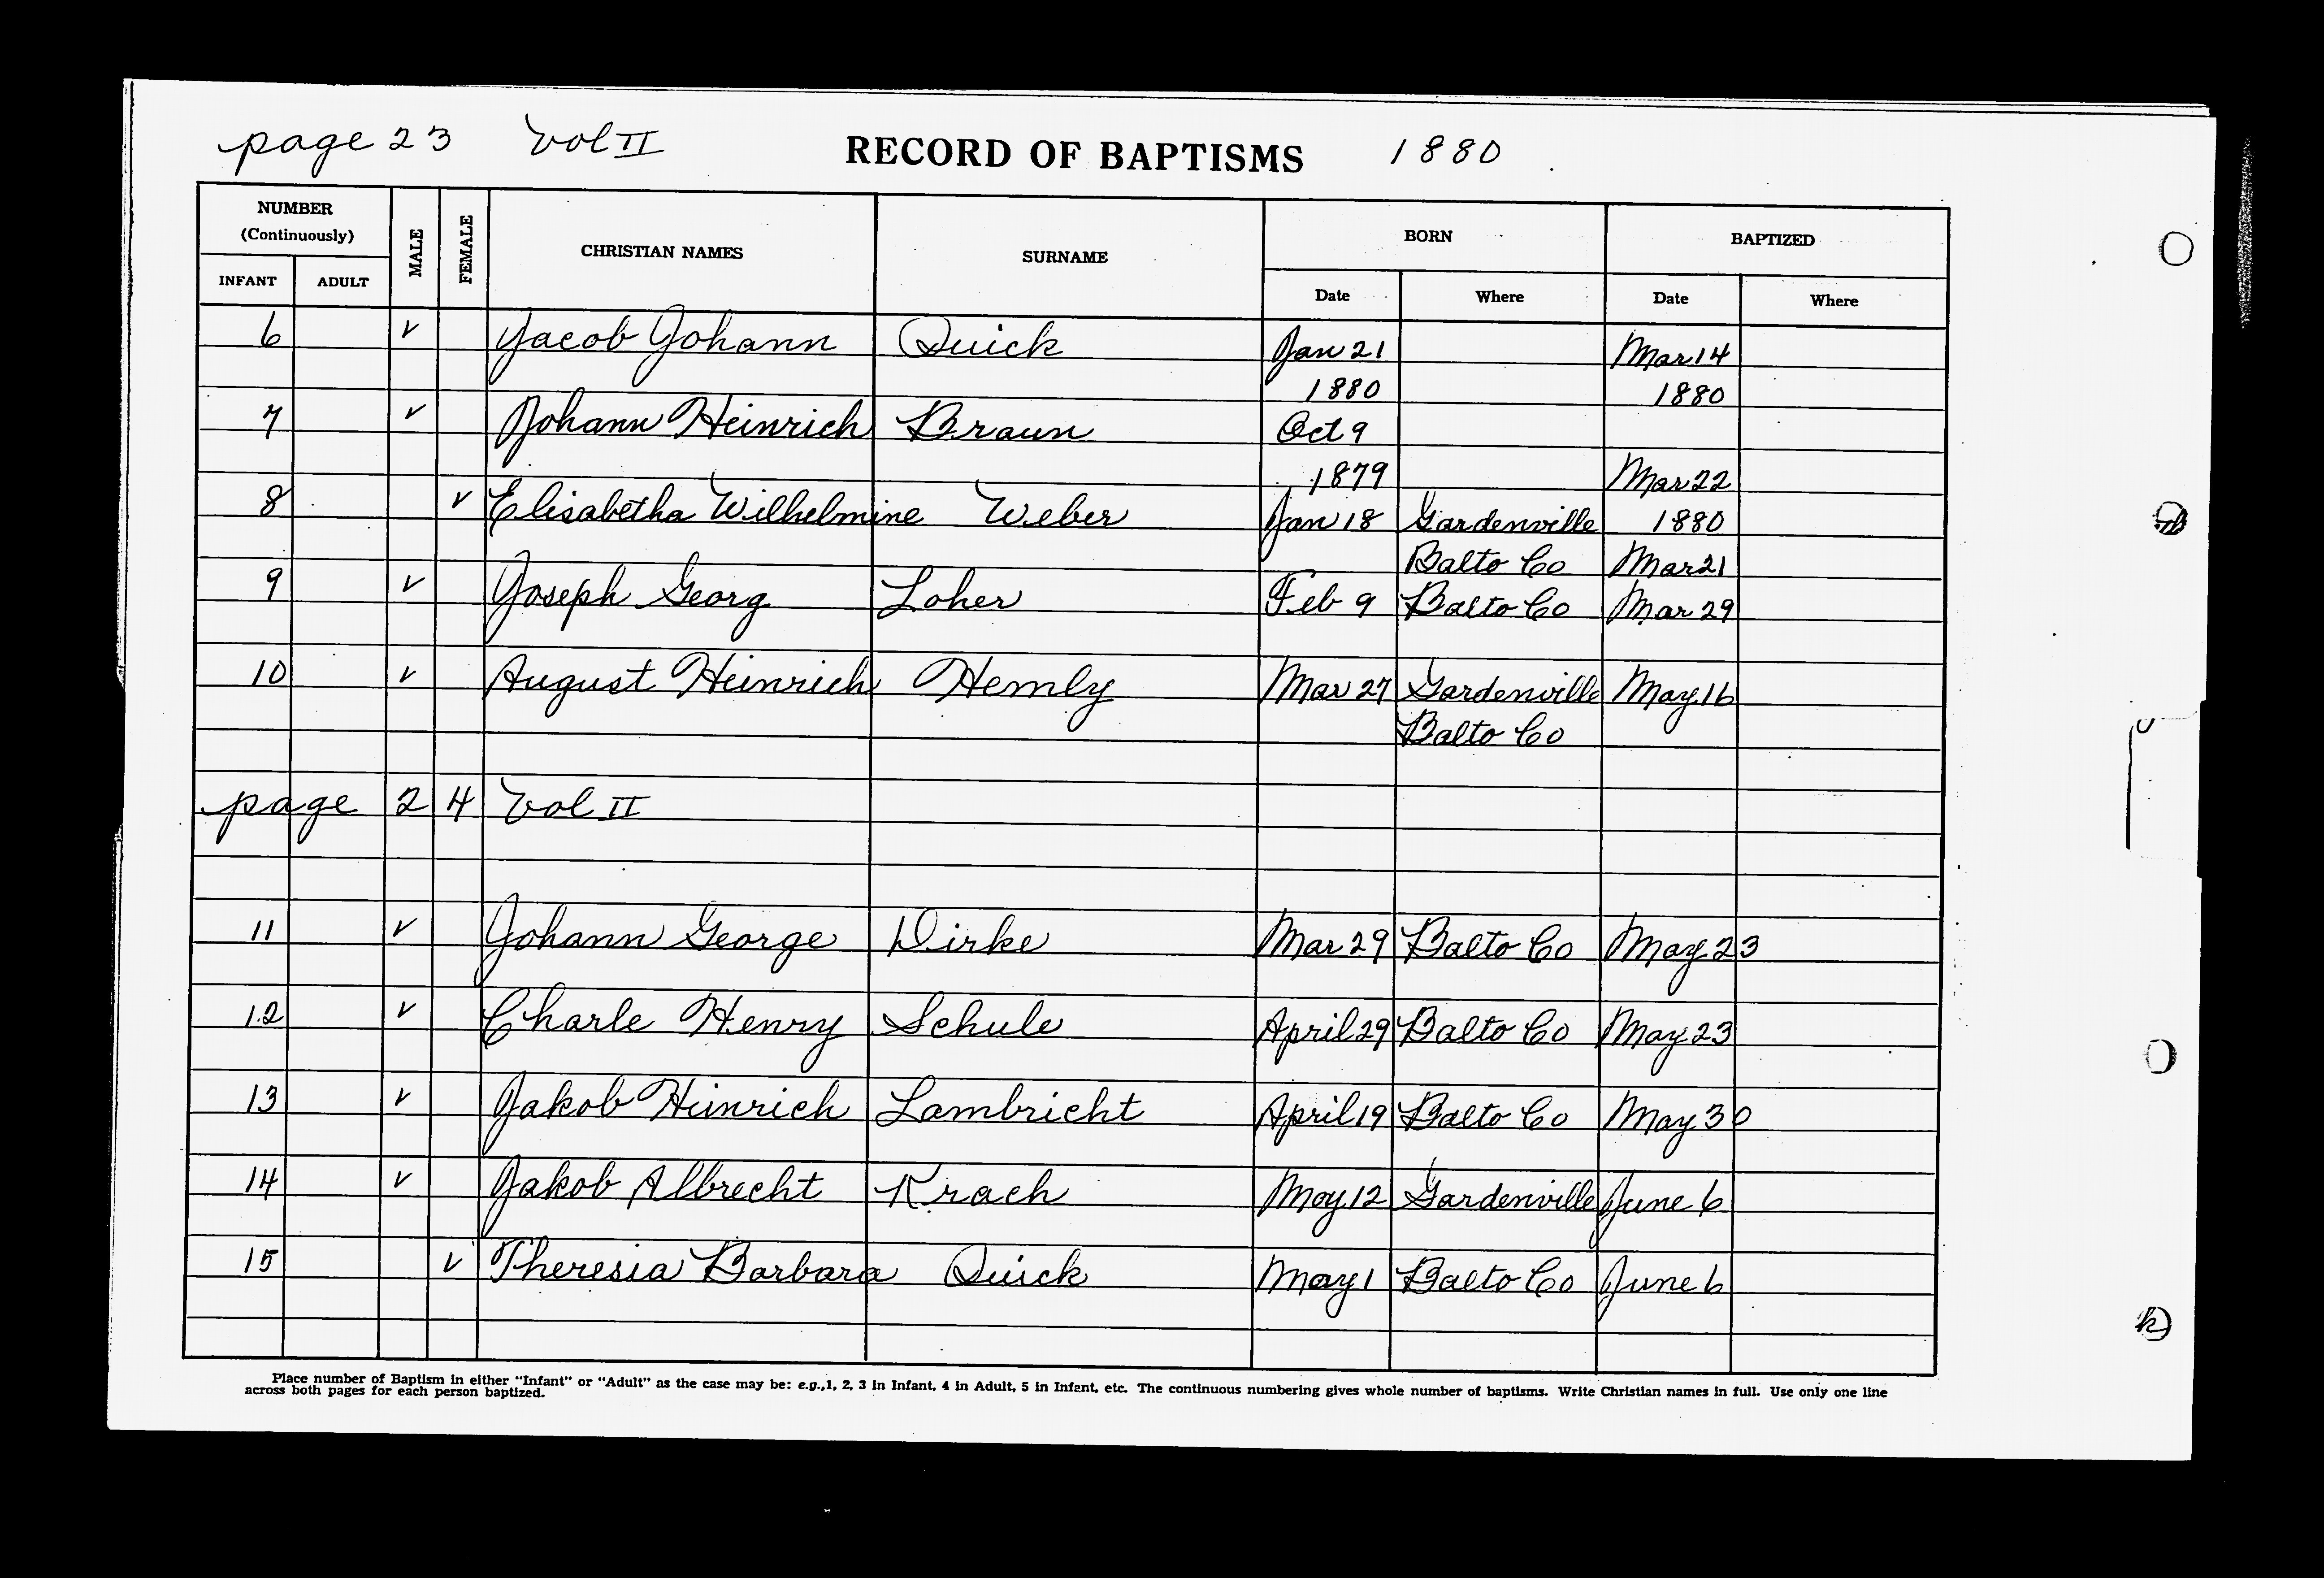 page 23 Vol II RECORD OF BAPTISMS 1880
NUMBER (Continuously) MALE FEMALE CHRISTIAN NAMES SURNAME BORN BAPTIZED
INFANT ADULT Date Where Date Where
6 v Jacob Johann Quick Jan 21 Mar 14
1880 1880
7 v Johann Heinrich Braun Oct 9
1879 Mar 22
8 v Elisabetha Wilhelmine Weber Jan 18 Gardenville 1880
Balto Co Mar 21
9 v Joseph Georg Loher Feb 9 Balto Co Mar 29
10 v August Heinrich Hemly Mar 27 Gardenville May 16
Balto Co
page 24 Vol II
11 v Johann George Dirke Mar 29 Balto Co May 23
12 v Charle Henry Schule April 29 Balto Co May 23
13 v Jakob Heinrich Lambricht April 19 Balto Co May 30
14 v Jakob Albrecht Krach May 12 Gardenville June 6
15 v Theresia Barbara Quick May 1 Balto Co June 6
Place number of Baptism in either "Infant" or "Adult" as the case may be: e.g.,1, 2, 3 in Infant, 4 in Adult, 5 in Infant, etc. The continuous numbering gives whole number of baptisms. Write Christian names in full. Use only one line
across both pages for each person baptized.